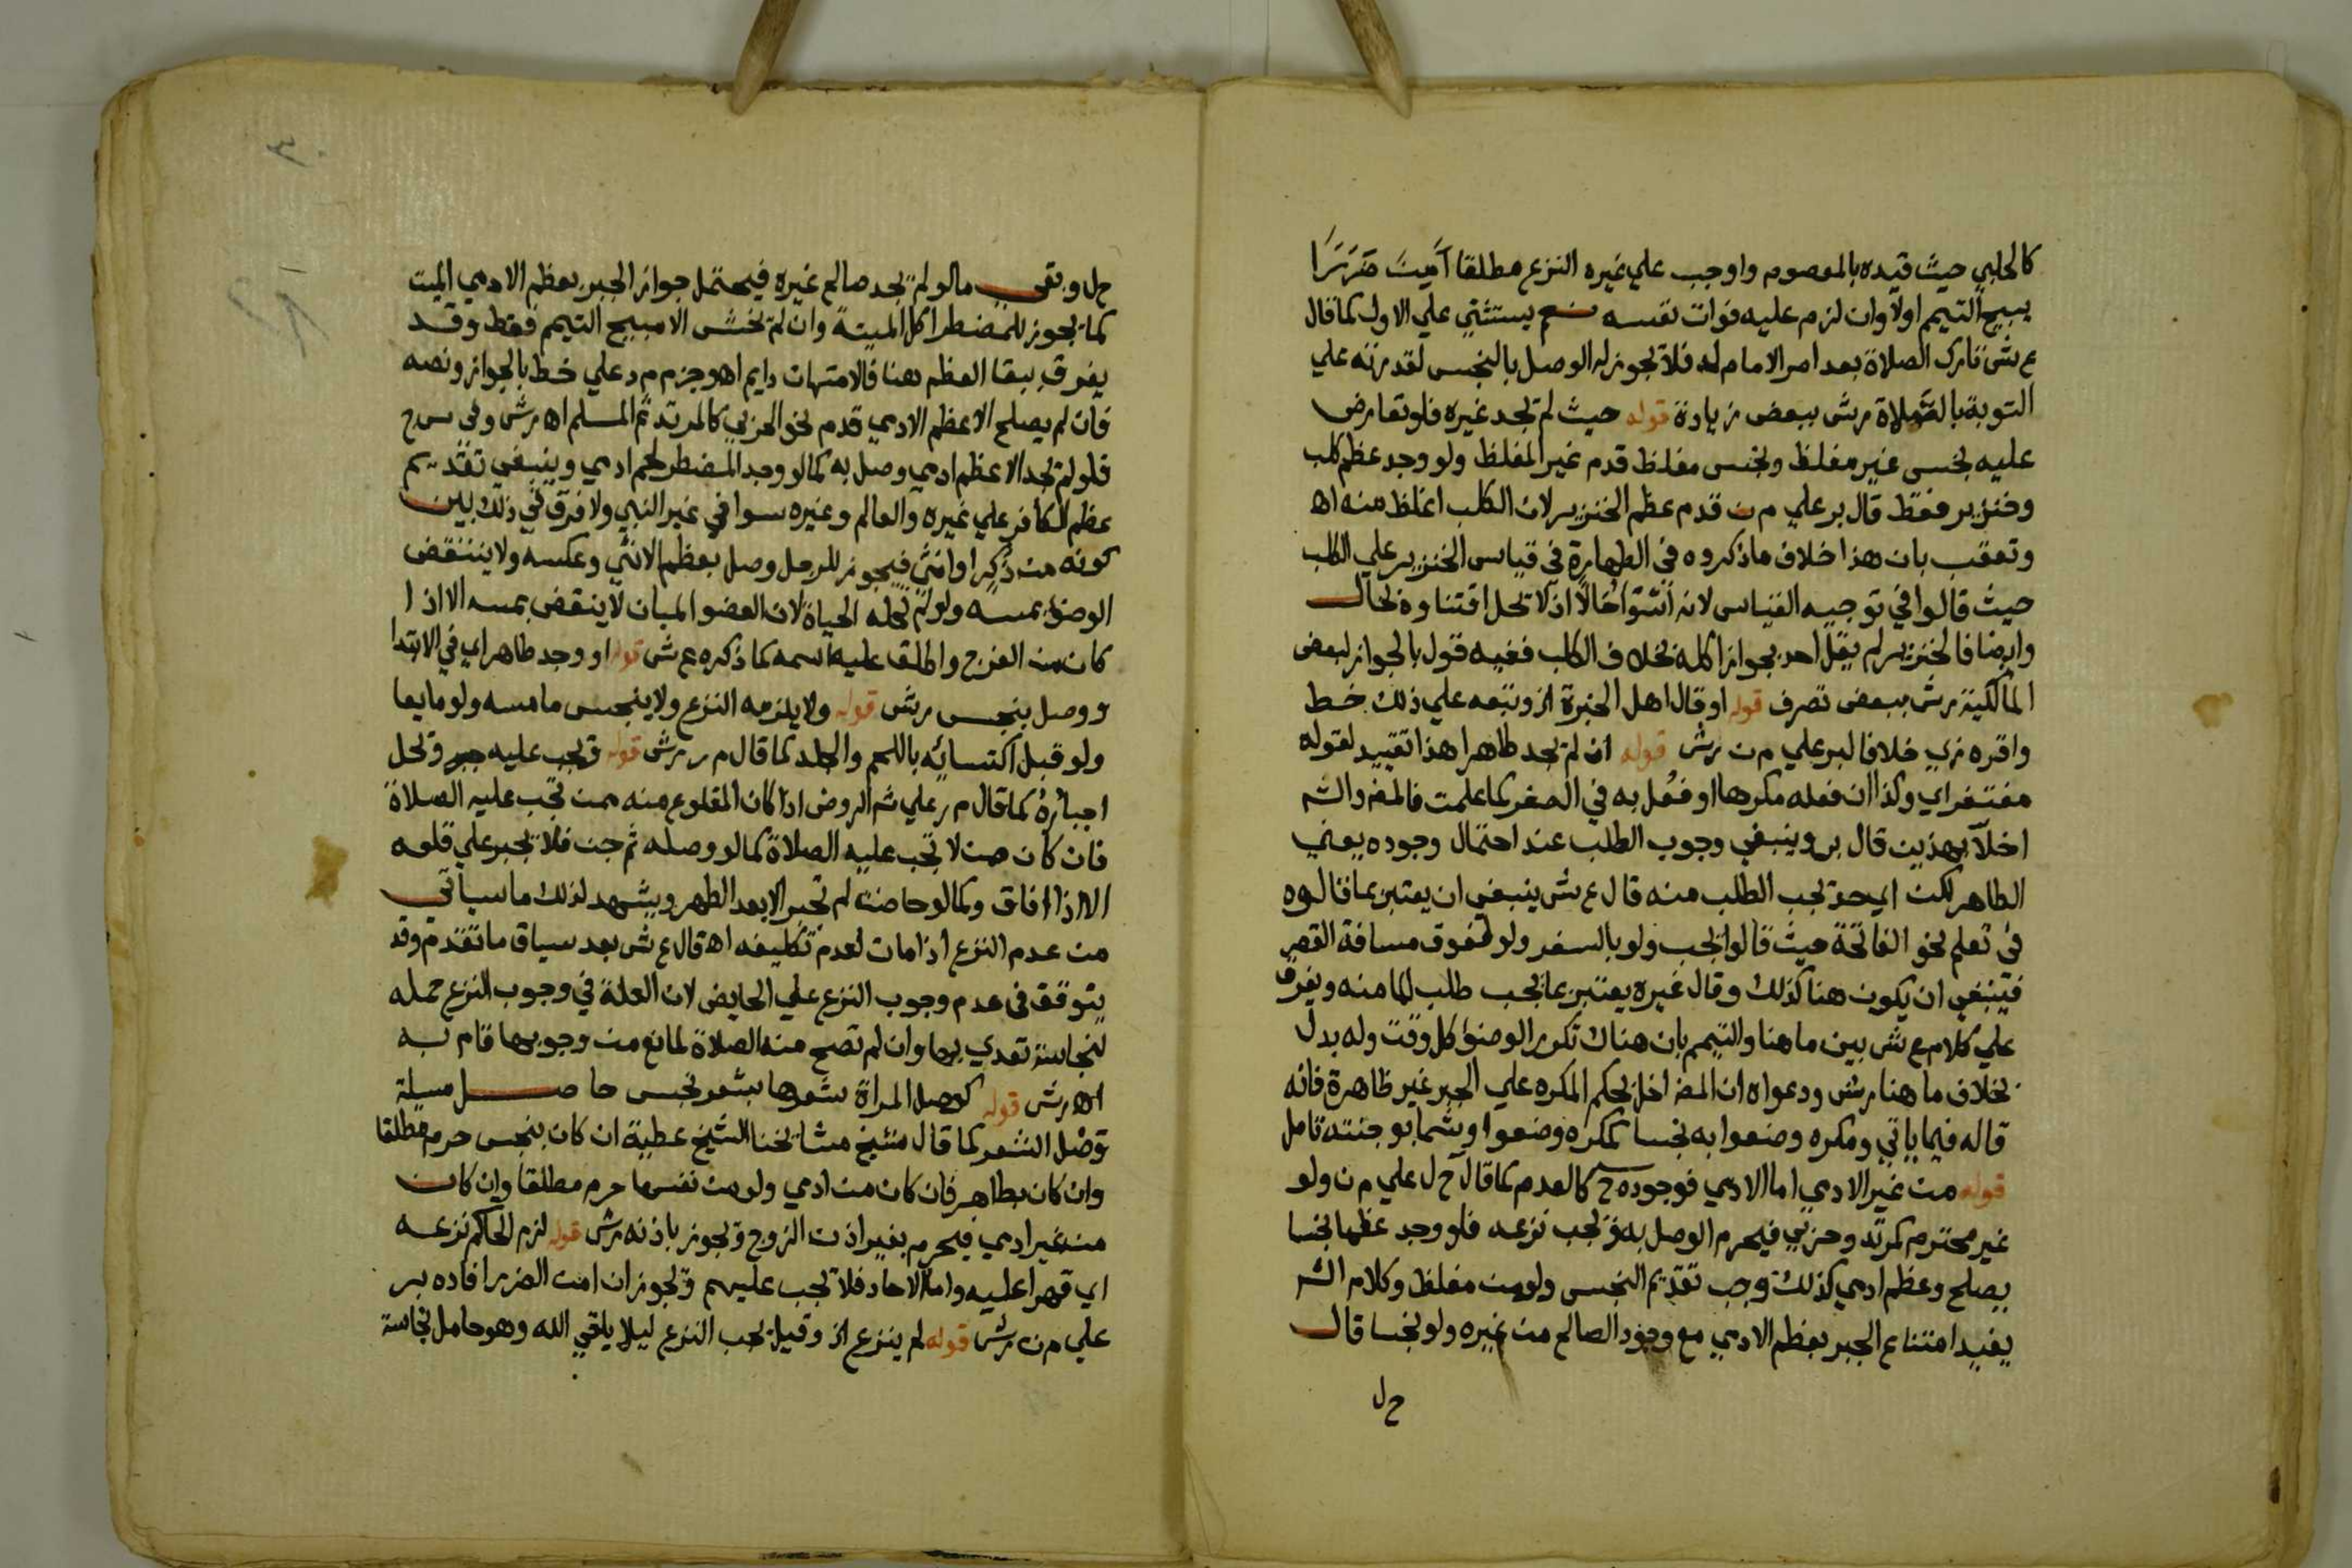 كالحلبي حيث قيده بالمعصوم واوجب علي غيره النزع مطلقا أَمِنَ ضَرَرًا
يبيح التيمم اولا وان لزم عليه فوات نفسه نعم يستثني علي الاول كما قال
ع ش تارك الصلاة بعد امر الامام له فلا يجوز له الوصل بالنجس لقدرته علي
التوبة بالصلاة رش ببعض زيادة قوله حيث لم يجد غيره فلو تعارض
عليه نجس غير مغلظ ونجس مغلظ قدم غير المغلظ ولو وجد عظم كلب
وخنزير فقط قال بر علي م ن قدم عظم الخنزير لان الكلب اغلظ منه اه
وتعقب بان هذا خلاف ما ذكروه في الطهارة في قياس الخنزير علي الكلب
حيث قالوا في توجيه القياس لانه اسوا حالا اذ لا تحل اقتناوه بحال
وايضا فالخنزير لم يقل احد بجواز اكله بخلاف الكلب ففيه قول بالجواز لبعض
المالكية رش ببعض تصرف قوله او قال اهل الخبرة الخ وتبعه علي ذلك خط
واقره زي خلافا لبر علي م ن رش قوله ان لم يجد طاهرا هذا تقييد لقوله
مغتفر اي وكذا ان فعله مكرها او فعل به في الصغر كما علمت فالمص والش
اخلا بهذين قال بر وينبغي وجوب الطلب عند احتمال وجوده يعني
الطاهر لكن اي حد يجب الطلب منه قال ع ش ينبغي ان يعتبر بما قالوه
في تعلم نحو الفاتحة حيث قالوا يجب ولو بالسفر ولو فوق مسافة القصر
فينبغي ان يكون هنا كذلك وقال غيره يعتبر بما يجب طلب الما منه ويفرق
علي كلام ع ش بين ما هنا والتيمم بان هناك تكرر الوضوء كل وقت وله بدل
بخلاف ما هنا رش ودعواه ان المص اخل بحكم المكره علي الجبر غير ظاهرة فانه
قاله فيما ياتي ومكره وضعوا به نجسا كمكره وضعوا وشما بوجنته تامل
قوله من غير الادمي اما الادمي فوجوده ح كالعدم كما قال ح ل علي م ن ولو
غير محترم كمرتد وحربي فيحرم الوصل به ويجب نزعه فلو وجد عظما نجسا
يصلح وعظم ادمي كذلك وجب تقديم النجس ولو من مغلظ وكلام الش
يفيد امتناع الجبر بعظم الادمي مع وجود الصالح من غيره ولو نجسا قال
ح ل
ح ل وبقي ما لو لم يجد صالح غيره فيحتمل جواز الجبر بعظم الادمي الميت
كما يجوز للمضطر اكل الميتة وان لم يخش الا مبيح التيمم فقط وقد
يفرق ببقا العظم هنا فالامتهان دايم اه وجزم م د علي خط بالجواز ونصه
فان لم يصلح الا عظم الادمي قدم نحو الحربي كالمرتد ثم المسلم اه رش وفي س ح
فلو لم يجد الا عظم ادمي وصل به كما لو وجد المضطر لحم ادمي وينبغي تقديم
عظم الكافر علي غيره والعالم وغيره سوا في غير النبي ولا فرق في ذلك بين
كونه من ذكر او انثي فيجوز للرجل وصل بعظم الانثي وعكسه ولا ينتقض
الوضوء بمسه ولو لم تحله الحياة لان العضو المبان لا ينقض بمسه الا اذا
كان من الفرج واطلق عليه اسمه كما ذكره ع ش قوله او وجد طاهرا اي في الابتدا
ووصل بنجس رش قوله ولا يلزمه النزع ولا ينجس ما مسه ولو مايعا
ولو قبل اكتسائه باللحم والجلد كما قال م ر رش قوله ويجب عليه جبر ومحل
اجباره كما قال م ر علي ش الروض اذا كان المقلوع منه ممن تجب عليه الصلاة
فان كان ممن لا تجب عليه الصلاة كما لو وصله ثم جن فلا يجبر علي قلعه
الا اذا افاق وكما لو حاضت لم تجبر الا بعد الطهر ويشهد لذلك ما سياتي
من عدم النزع اذا مات لعدم تكليفه اه قال ع ش بعد سياق ما تقدم وقد
يتوقف في عدم وجوب النزع علي الحايض لان العلة في وجوب النزع حمله
لنجاسة تعدي بها وان لم تصح منه الصلاة لمانع من وجوبها قام به
اه رش قوله كوصل المراة شعرها بشعر نجس حاصل مسيلة
وصل الشعر كما قال شيخ مشايخنا الشيخ عطية ان كان بنجس حرم مطلقا
وان كان بطاهر فان كان من ادمي ولو من نفسها حرم مطلقا وان كان
من غير ادمي فيحرم بغير اذن الزوج ويجوز باذنه رش قوله لزم الحاكم نزعه
اي قهرا عليه واما الاحاد فلا يجب عليهم ويجوز ان امن الضرر افاده بر
علي م ن رش قوله لم ينزع الخ وقيل يجب النزع ليلا يلقي الله وهو حامل نجاسة